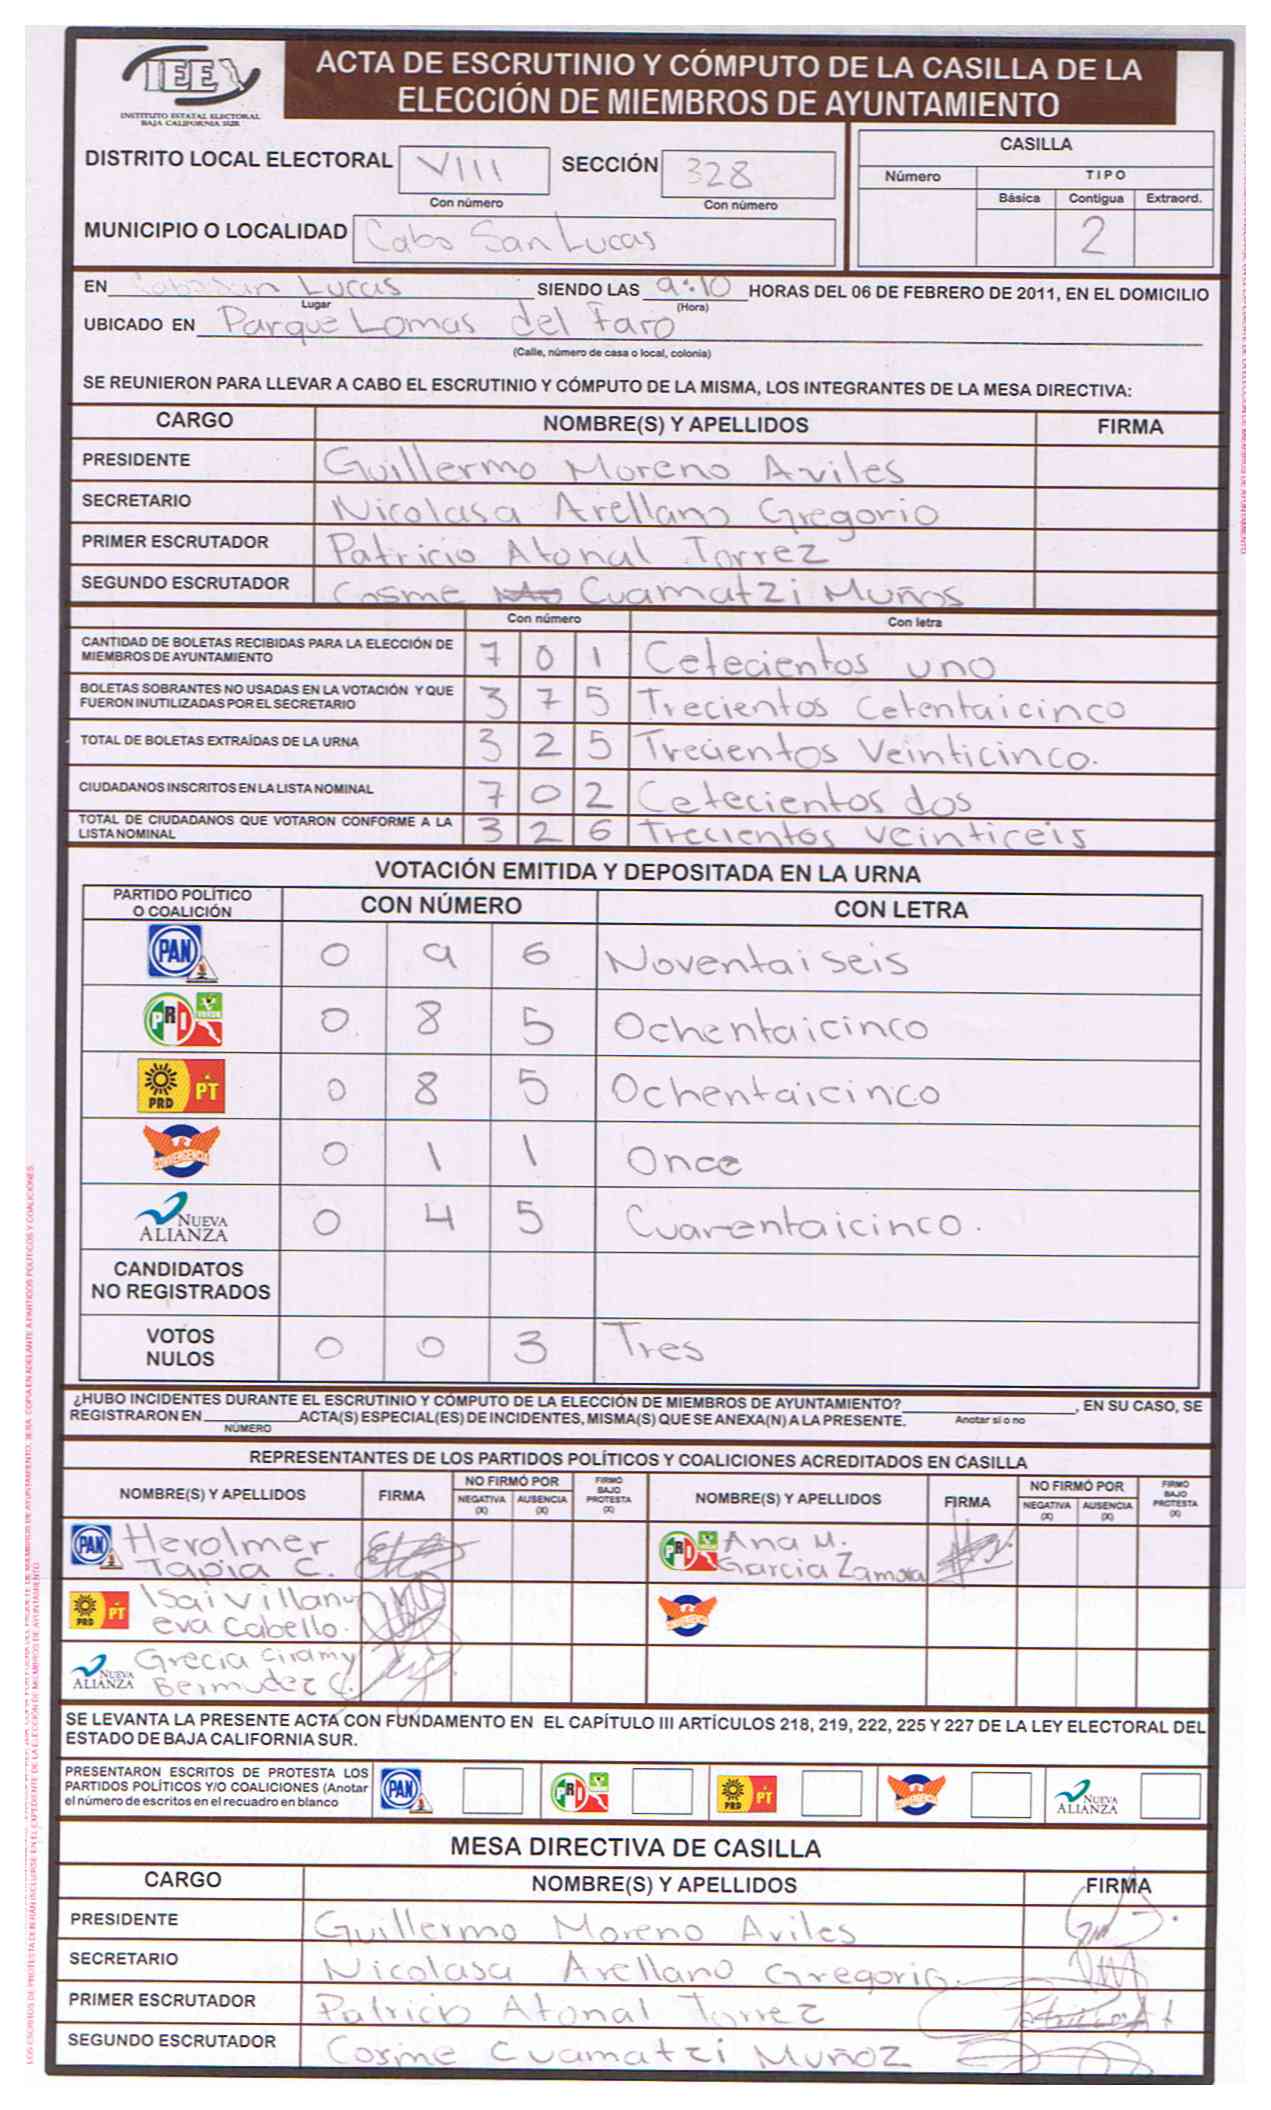 IEE
INSTITUTO ESTATAL ELECTORAL
BAJA CALIFORNIA SUR
ACTA DE ESCRUTINIO Y CÓMPUTO DE LA CASILLA DE LA
ELECCIÓN DE MIEMBROS DE AYUNTAMIENTO
DISTRITO LOCAL ELECTORAL VIII SECCIÓN 328
Con número Con número
MUNICIPIO O LOCALIDAD Cabo San Lucas
CASILLA
Número TIPO
Básica Contigua Extraord.
2
EN Cabo San Lucas SIENDO LAS 9:10 HORAS DEL 06 DE FEBRERO DE 2011, EN EL DOMICILIO
Lugar (Hora)
UBICADO EN Parque Lomas del Faro
(Calle, número de casa o local, colonia)
SE REUNIERON PARA LLEVAR A CABO EL ESCRUTINIO Y CÓMPUTO DE LA MISMA, LOS INTEGRANTES DE LA MESA DIRECTIVA:
CARGO NOMBRE(S) Y APELLIDOS FIRMA
PRESIDENTE Guillermo Moreno Aviles
SECRETARIO Nicolasa Arellano Gregorio
PRIMER ESCRUTADOR Patricio Atonal Torrez
SEGUNDO ESCRUTADOR Cosme Cuamatzi Muños
Con número Con letra
CANTIDAD DE BOLETAS RECIBIDAS PARA LA ELECCIÓN DE
MIEMBROS DE AYUNTAMIENTO 7 0 1 Cetecientos uno
BOLETAS SOBRANTES NO USADAS EN LA VOTACIÓN Y QUE
FUERON INUTILIZADAS POR EL SECRETARIO 3 7 5 Trecientos Cetentaicinco
TOTAL DE BOLETAS EXTRAÍDAS DE LA URNA 3 2 5 Trecientos Veinticinco.
CIUDADANOS INSCRITOS EN LA LISTA NOMINAL 7 0 2 Cetecientos dos
TOTAL DE CIUDADANOS QUE VOTARON CONFORME A LA
LISTA NOMINAL 3 2 6 Trecientos veinticeis
VOTACIÓN EMITIDA Y DEPOSITADA EN LA URNA
PARTIDO POLÍTICO
O COALICIÓN CON NÚMERO CON LETRA
PAN 0 9 6 Noventaiseis
PRI VERDE 0 8 5 Ochentaicinco
PRD PT 0 8 5 Ochentaicinco
CONVERGENCIA 0 1 1 Once
NUEVA ALIANZA 0 4 5 Cuarentaicinco.
CANDIDATOS
NO REGISTRADOS
VOTOS
NULOS 0 0 3 Tres
¿HUBO INCIDENTES DURANTE EL ESCRUTINIO Y CÓMPUTO DE LA ELECCIÓN DE MIEMBROS DE AYUNTAMIENTO? , EN SU CASO, SE
REGISTRARON EN ACTA(S) ESPECIAL(ES) DE INCIDENTES, MISMA(S) QUE SE ANEXA(N) A LA PRESENTE. Anotar sí o no
NÚMERO
REPRESENTANTES DE LOS PARTIDOS POLÍTICOS Y COALICIONES ACREDITADOS EN CASILLA
NOMBRE(S) Y APELLIDOS FIRMA NO FIRMÓ POR NEGATIVA (X) AUSENCIA (X) FIRMÓ BAJO PROTESTA (X) NOMBRE(S) Y APELLIDOS FIRMA NO FIRMÓ POR NEGATIVA (X) AUSENCIA (X) FIRMÓ BAJO PROTESTA (X)
PAN Herolmer
Tapia C.
PRI Ana M.
Garcia Zamora
PRD PT Isai Villanu
eva Cabello.
CONVERGENCIA
NUEVA ALIANZA Grecia Ciramy
Bermudez C.
SE LEVANTA LA PRESENTE ACTA CON FUNDAMENTO EN EL CAPÍTULO III ARTÍCULOS 218, 219, 222, 225 Y 227 DE LA LEY ELECTORAL DEL
ESTADO DE BAJA CALIFORNIA SUR.
PRESENTARON ESCRITOS DE PROTESTA LOS
PARTIDOS POLÍTICOS Y/O COALICIONES (Anotar
el número de escritos en el recuadro en blanco
PAN PRI PRD PT CONVERGENCIA NUEVA ALIANZA
MESA DIRECTIVA DE CASILLA
CARGO NOMBRE(S) Y APELLIDOS FIRMA
PRESIDENTE Guillermo Moreno Aviles
SECRETARIO Nicolasa Arellano Gregorio.
PRIMER ESCRUTADOR Patricio Atonal Torrez
SEGUNDO ESCRUTADOR Cosme Cuamatzi Muñoz